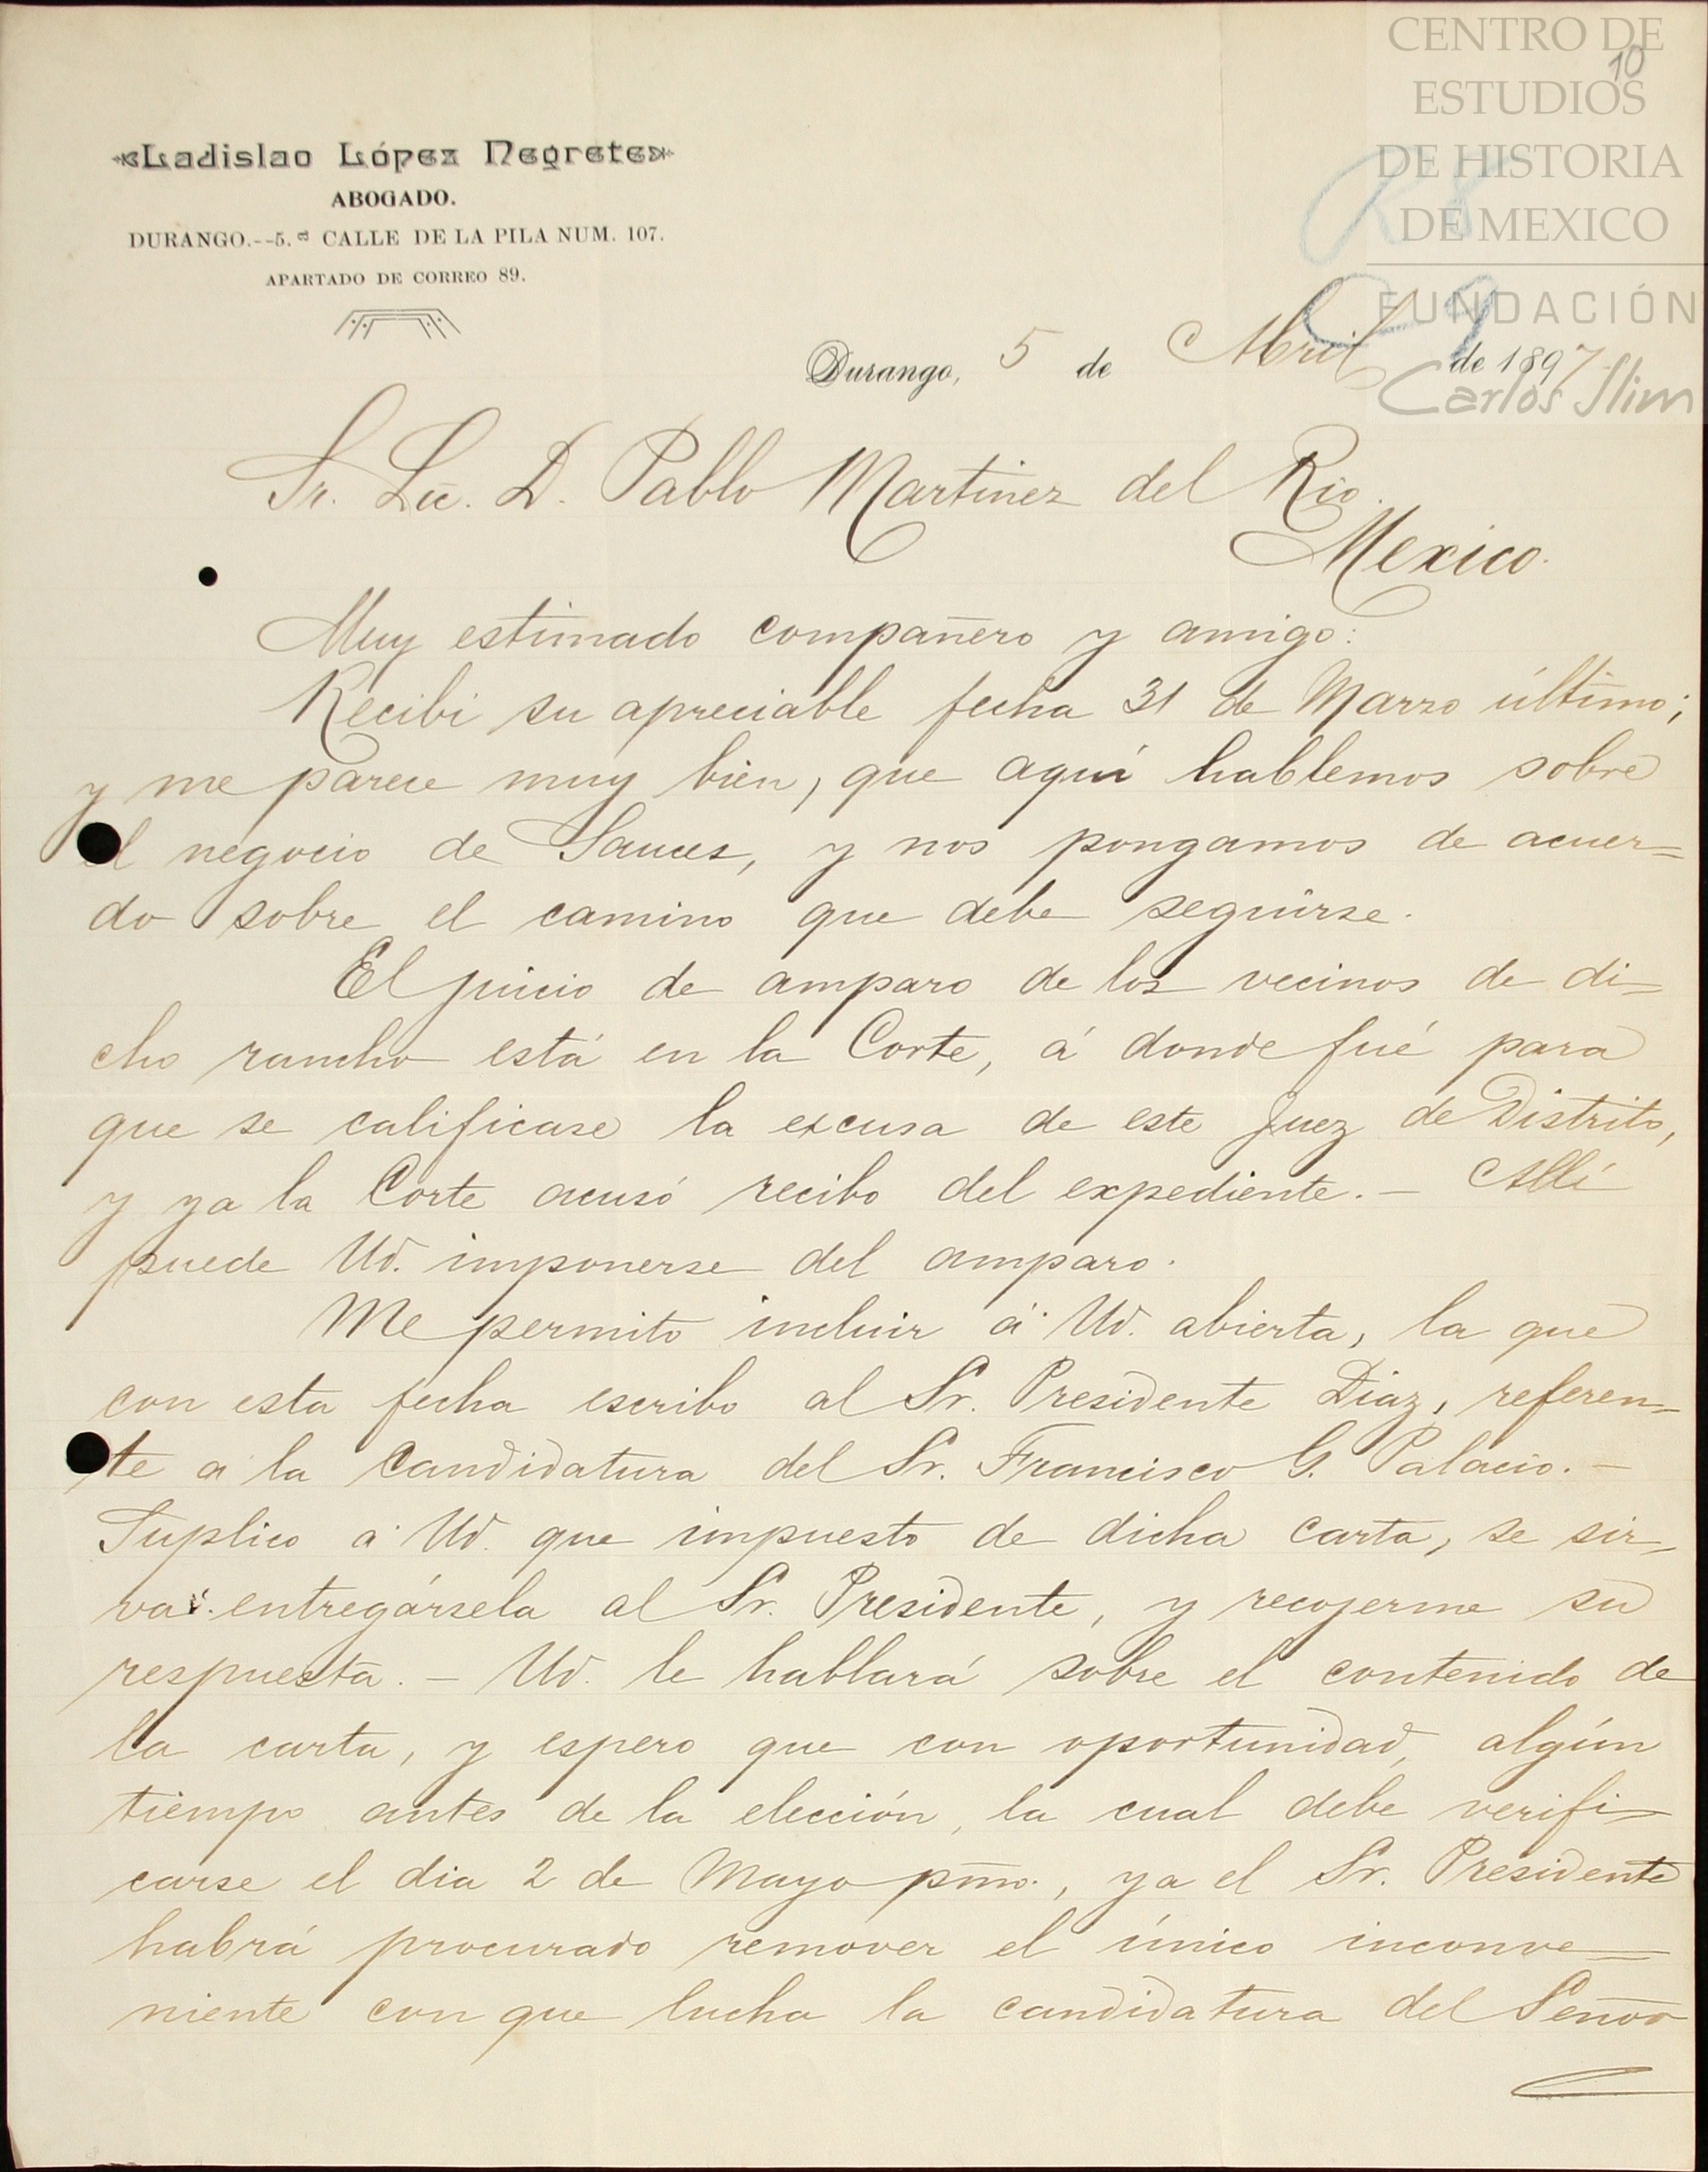 CENTRO DE
ESTUDIOS
DE HISTORIA
DE MEXICO
FUNDACIÓN
Carlos Slim
10
Ladislao López Negrete
ABOGADO.
DURANGO.--5.ª CALLE DE LA PILA NUM. 107.
APARTADO DE CORREO 89.
Durango, 5 de Abril de 1897
Sr. Lic. D. Pablo Martinez del Rio.
Mexico.
Muy estimado compañero y amigo:
Recibi su apreciable fecha 31 de Marzo último;
y me parece muy bien, que aquí hablemos sobre
el negocio de Sauces, y nos pongamos de acuer=
do sobre el camino que debe seguirse.
El juicio de amparo de los vecinos de di-
cho rancho está en la Corte, á donde fué para
que se calificase la excusa de este Juez de Distrito,
y ya la Corte acusó recibo del expediente.- Allí
puede Ud. imponerse del amparo.
Me permito incluir á Ud. abierta, la que
con esta fecha escribo al Sr. Presidente Diaz, referen-
te a la candidatura del Sr. Francisco G. Palacio.-
Suplico a Ud. que impuesto de dicha carta, se sir-
va entregársela al Sr. Presidente, y recojerme su
respuesta.- Ud. le hablará sobre el contenido de
la carta, y espero que con oportunidad, algún
tiempo antes de la elección, la cual debe verifi-
carse el dia 2 de Mayo pmo., ya el Sr. Presidente
habrá procurado remover el único inconve-
niente con que lucha la candidatura del Señor